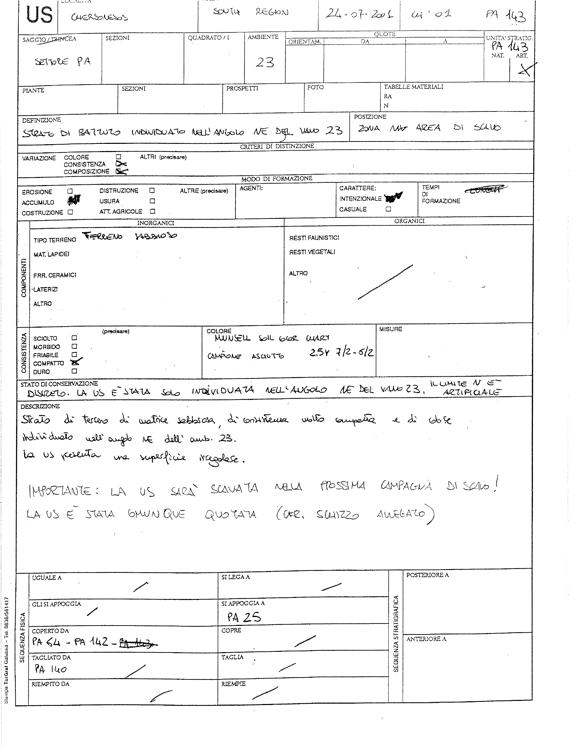 US
LOCALITÀ
CHERSONESOS
SOUTH REGION
24-07-2001
PA 143
SAGGIO/TRINCEA
SETTORE PA
SEZIONI
QUADRATO/I
AMBIENTE
23
QUOTE
ORIENTAM.
DA
A
UNITA' STRATIG.
PA 143
NAT.
ART.
X
PIANTE
SEZIONI
PROSPETTI
FOTO
TABELLE MATERIALI
RA
N
DEFINIZIONE
STRATO DI BATTUTO INDIVIDUATO NELL'ANGOLO NE DEL VANO 23
POSIZIONE
ZONA AREA DI SCAVO
CRITERI DI DISTINZIONE
VARIAZIONE
COLORE
CONSISTENZA
COMPOSIZIONE
ALTRI (precisare)
MODO DI FORMAZIONE
EROSIONE
ACCUMULO
COSTRUZIONE
DISTRUZIONE
USURA
ATT. AGRICOLE
ALTRE (precisare)
AGENTI:
CARATTERE:
INTENZIONALE
CASUALE
TEMPI
DI
FORMAZIONE
COMPONENTI
INORGANICI
TIPO TERRENO TERRENO SABBIOSO
MAT. LAPIDEI
FRR. CERAMICI
LATERIZI
ALTRO
ORGANICI
RESTI FAUNISTICI
RESTI VEGETALI
ALTRO
CONSISTENZA
(precisare)
SCIOLTO
MORBIDO
FRIABILE
COMPATTO
DURO
COLORE
MUNSELL SOIL COLOR CHART
CAMPIONE ASCIUTTO 2.5Y 7/2-6/2
MISURE
STATO DI CONSERVAZIONE
DISCRETO. LA US E' STATA SOLO INDIVIDUATA NELL'ANGOLO NE DEL VANO 23. IL LIMITE N E' ARTIFICIALE
DESCRIZIONE
Strato di terreno di matrice sabbiosa, di consistenza molto compatta e di
individuato nell'angolo NE dell'amb. 23.
La US presenta una superficie irregolare.
IMPORTANTE: LA US SARA' SCAVATA NELLA PROSSIMA CAMPAGNA DI SCAVO!
LA US E' STATA COMUNQUE QUOTATA (CFR. SCHIZZO ALLEGATO)
SEQUENZA FISICA
UGUALE A
SI LEGA A
GLI SI APPOGGIA
SI APPOGGIA A
PA 25
COPERTO DA
PA 64 - PA 142 - PA 143
COPRE
TAGLIATO DA
PA 140
TAGLIA
RIEMPITO DA
RIEMPIE
SEQUENZA STRATIGRAFICA
POSTERIORE A
ANTERIORE A